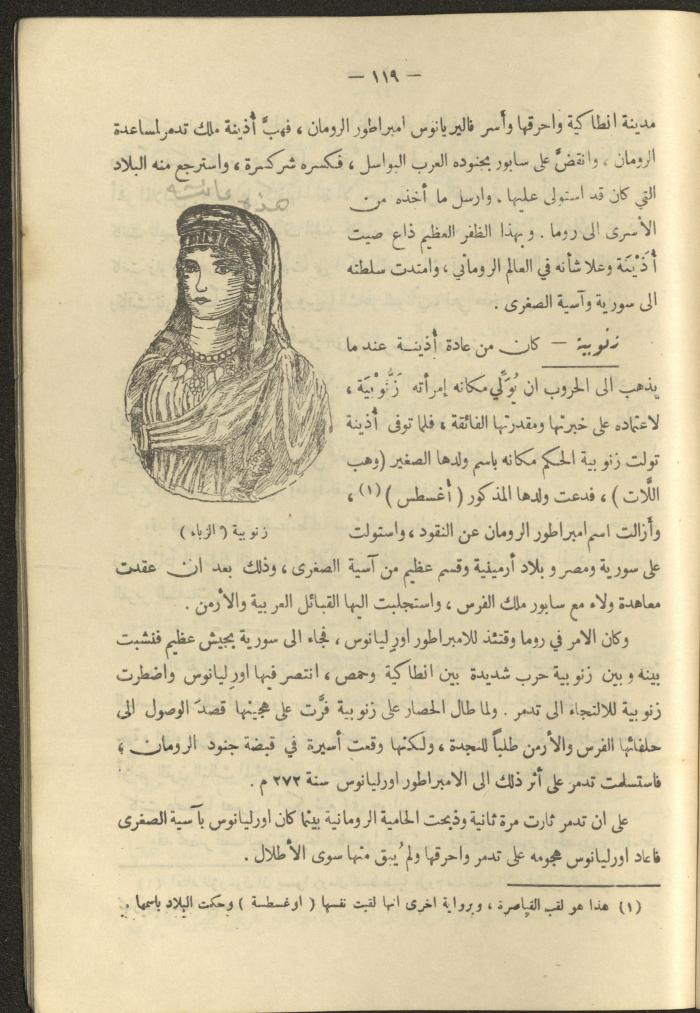 — ١١٩ —
مدينة انطاكية واحرقها وأسر فاليريانوس امبراطور الرومان ، فهبَّ أُذينة ملك تدمر لمساعدة
الرومان ، وانقضَّ على سابور بجنوده العرب البواسل ، فكسره شر كسرة ، واسترجع منه البلاد
التي كان قد استولى عليها ، وارسل ما أخذه من
الأسرى الى روما . وبهذا الظفر العظيم ذاع صيت
أُذَيْنَة وعلا شأنه في العالم الروماني ، وامتدت سلطته
الى سورية وآسية الصغرى .
زنوبية — كان من عادة أذينة عند ما
يذهب الى الحروب ان يُوَلّي مكانه إمرأته زَنُوْبْيَة ،
لاعتماده على خبرتها ومقدرتها الفائقة ، فلما توفى أذينة
تولت زنوبية الحكم مكانه باسم ولدها الصغير (وهب
اللَّات) ، فدعت ولدها المذكور ( أغسطس ) (١) ،
وأزالت اسم امبراطور الرومان عن النقود ، واستولت
زنوبية ( الزباء )
على سورية ومصر وبلاد أرمينية وقسم عظيم من آسية الصغرى ، وذلك بعد ان عقدت
معاهدة ولاء مع سابور ملك الفرس ، واستجلبت اليها القبائل العربية والأرمن .
وكان الامر في روما وقتئذ للامبراطور اورليانوس ، فجاء الى سورية بجيش عظيم فنشبت
بينه وبين زنوبية حرب شديدة بين انطاكية وحمص ، انتصر فيها اورليانوس واضطرت
زنوبية للالتجاء الى تدمر . ولما طال الحصار على زنوبية فرَّت على هجينها قصدَ الوصول الى
حلفائها الفرس والأرمن طلباً للنجدة ، ولكنها وقعت أسيرة في قبضة جنود الرومان ؛
فاستسلمت تدمر على أثر ذلك الى الامبراطور اورليانوس سنة ٢٧٢ م .
على ان تدمر ثارت مرة ثانية وذبحت الحامية الرومانية بينما كان اورليانوس بآسية الصغرى
فاعاد اورليانوس هجومه على تدمر واحرقها ولم يُبق منها سوى الأطلال .
(١) هذا هو لقب القياصرة ، وبرواية اخرى انها لقبت نفسها ( اوغسطسة ) وحكمت البلاد باسمها .